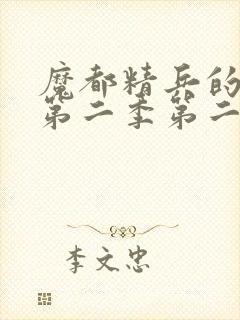 魔都精兵的
第二季第二
李文忠